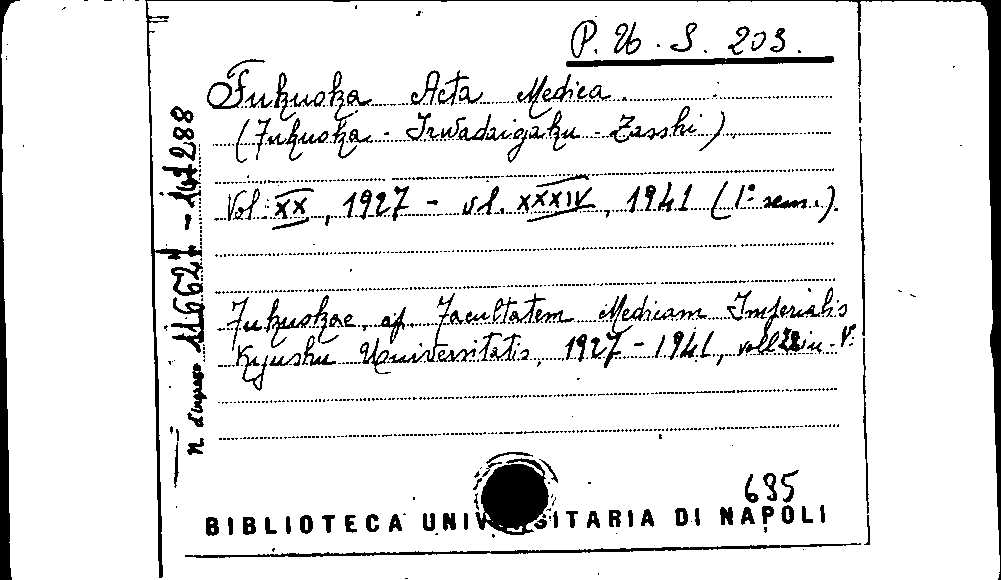 P. U. S. 203.
Fukuoka Acta Medica.
(Fukuoka - Ikwadaigaku - Zasshi)
Vol. XX, 1927 - vl. XXXIV, 1941 (1° sem.).
Fukuokae, ap. Facultatem Medicam Imperialis
Kyushu Universitatis, 1927 - 1941, voll. in -
N. d'ingresso 116627 -
695
BIBLIOTECA UNIVERSITARIA DI NAPOLI